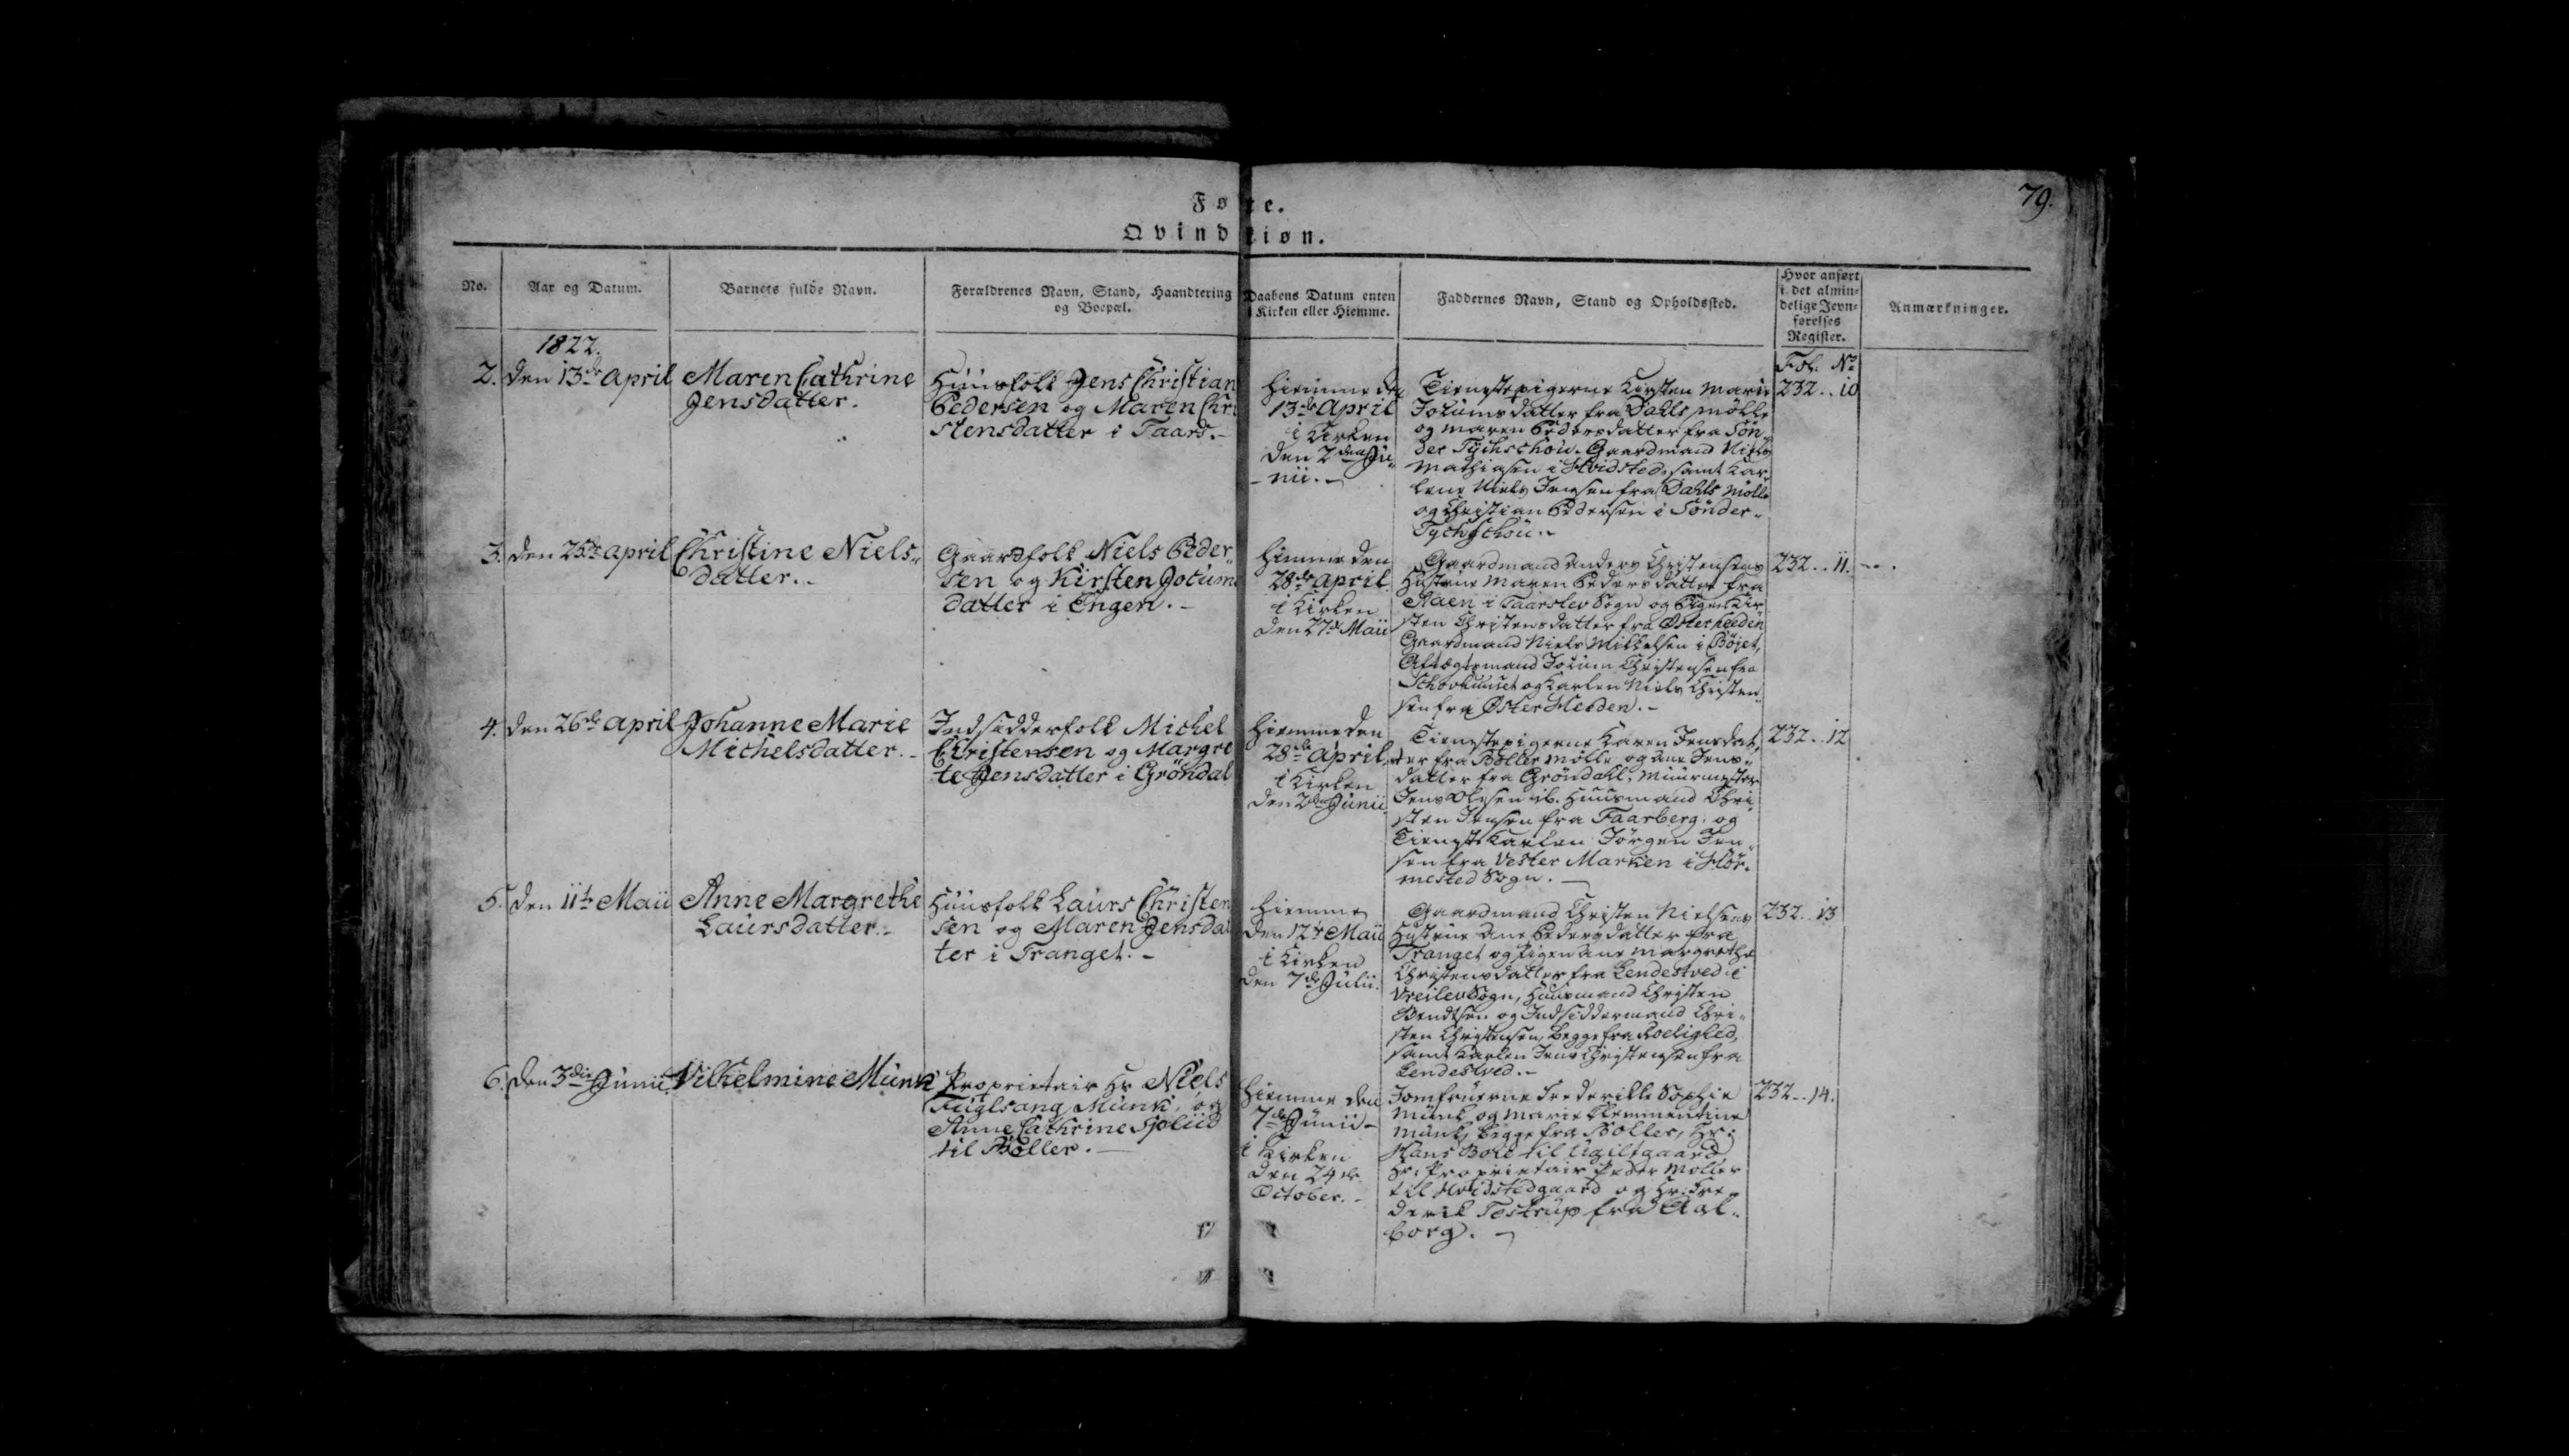 79.
Føte.
Qvindkiøn.
No.
Aar og Datum.
Barnets fulde Navn.
Forældrenes Navn, Stand, Haandtering
og Boepæl.
Daabens Datum enten
i Kirken eller Hiemme.
Faddernes Navn, Stand og Opholdssted.
Hvor anført
i det almin-
delige Jevn-
førelses
Register.
Anmærkninger.
1822.
Fol. No
2. den 13de April
Maren Cathrine
Jensdatter.
Huusfolk Jens Christian
Pedersen og Maren Chri
stensdatter i Taars.-
hiemme den
13de April
i Kirken
den 2den Ju-
nii.-
Tienstepigerne Kirsten Marie
Jokumsdatter fra Dahls mølle
og Maren Pedersdatter fra Søn-
der Tychschou. Gaardmand Niels
Mathiasen i Hvidsted, samt Kar-
lene Niels Jensen fra Dahls Mølle
og Christian Pedersen i Sønder-
Tychschou.-
232.. 10
3. den 25de April
Christine Niels-
datter.-
Gaardfolk Niels Peder-
sen og Kirsten Jocum
datter i Engen.-
hiemme den
28de April
i Kirken
den 27de Maii
Gaardmand Anders Christensens
Hustrue Maren Pedersdatter fra
i Taarslev Sogn og Pigen Kir
sten Christensdatter fra Østerheeden
Gaardmand Niels Mikkelsen i Bøjet,
Aftægtsmand Jocum Christensen fra
Schovhuuset og Karlen Niels Christen
sen fra Øster Heeden.-
232.. 11.
4. den 26de April
Johanne Marie
Michelsdatter.-
Indsidderfolk Michel
Christensen og Margre
te Jensdatter i Grøndal
hiemme den
28de April
i Kirken
den 2den Junii
Tienstepigerne Karen Jensdat-
ter fra Bøller Mølle og Ane Jens-
datter fra Grøndahl, Muurmester
Jens Olesen ib. Huusmand Chri-
sten Jensen fra Faarberg, og
Tienstekarlen Jørgen Jen-
sen fra Vester Marken i Hør-
mested Sogn.-
232.. 12
5. den 11te Maii
Anne Margrethe
Laursdatter.-
Huusfolk Laurs Christen
sen og Maren Jensdat
ter i Tranget.-
hiemme
den 12te Maii
i Kirken
den 7de Julii.
Gaardmand Christen Nielsens
Hustrue Ane Pedersdatter fra
Tranget og Pigen Ane Margrethe
Christensdatter fra Lendestved i
Vreilev Sogn, Huusmand Christen
Bendtsen og Indsiddermand Chri-
sten Christensen, begge fra Roelighed,
samt Karlen Jens Christensen fra
Lendestved.-
232.. 13
6. den 3die Junii
Vilhelmine Munk
Proprietair Hr Niels
Fuglsang Munk, og
Anne Cathrine Spliid
til Bøller.-
hiemme den
7de Junii-
i Kirken
den 24de
October.-
Jomfruerne Frederikke Sophie
Munk og Marie Clemmentine
Munk, begge fra Bøller, Hr:
Hans til Ugiltgaard
Hr: Proprietair Peder Møller
til Hvidstedgaard og Hr: Fre-
derik Testrup fra Aal-
borg.-
232.. 14.